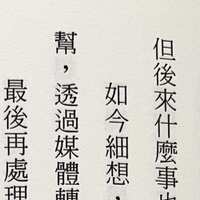 但後來什麼事
如今細想，
幫，透過媒體轉
最後再處理